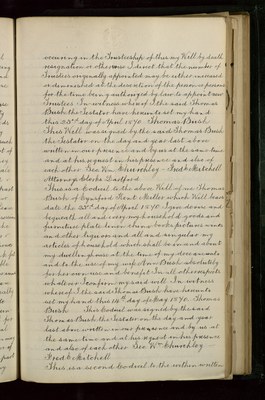 occurring in the Trusteeship of this my Will by death
resignation or otherwise I direct that the number of
Trustees originally appointed may be either increased
or diminished at the discretion of the person or persons
for the time being authorized by law to appoint new
Trustees In witness whereof I the said Thomas
Bush the Testator have hereunto set my hand
this 23rd day of April 1870 Thomas Bush
This Will was signed by the said Thomas Bush
the Testator on the day and year last above
written in our presence and by us at the same time
and at his request in his presence and also of
each other Geo Wm Fred C Mitchell
Attorneys Clerks
This is a Codicil to the above Will of me Thomas
Bush of Eynsford Kent Miller which Will bears
date the 23rd day of April 1870 I give devise and
bequeath all and every my household goods and
furniture plate linen china books pictures wines
and other liquors and all and singular my
articles of household which shall be in and about
my dwellinghouse at the time of my decease unto
and to the use of my wife Ann Bush absolutely
for her own use and benefit In all other respects
whatever I confirm my said will In witness
whereof I the said Thomas Bush have hereunto
set my hand this 14th day of May 1870 Thomas
Bush This Codicil was signed by the said
Thomas Bush the Testator on the day and year
last above written in our presence and by us at
the same time and at his request in his presence
and also of each other Geo Wm
Fred C Mitchell
This is a second Codicil to the within written